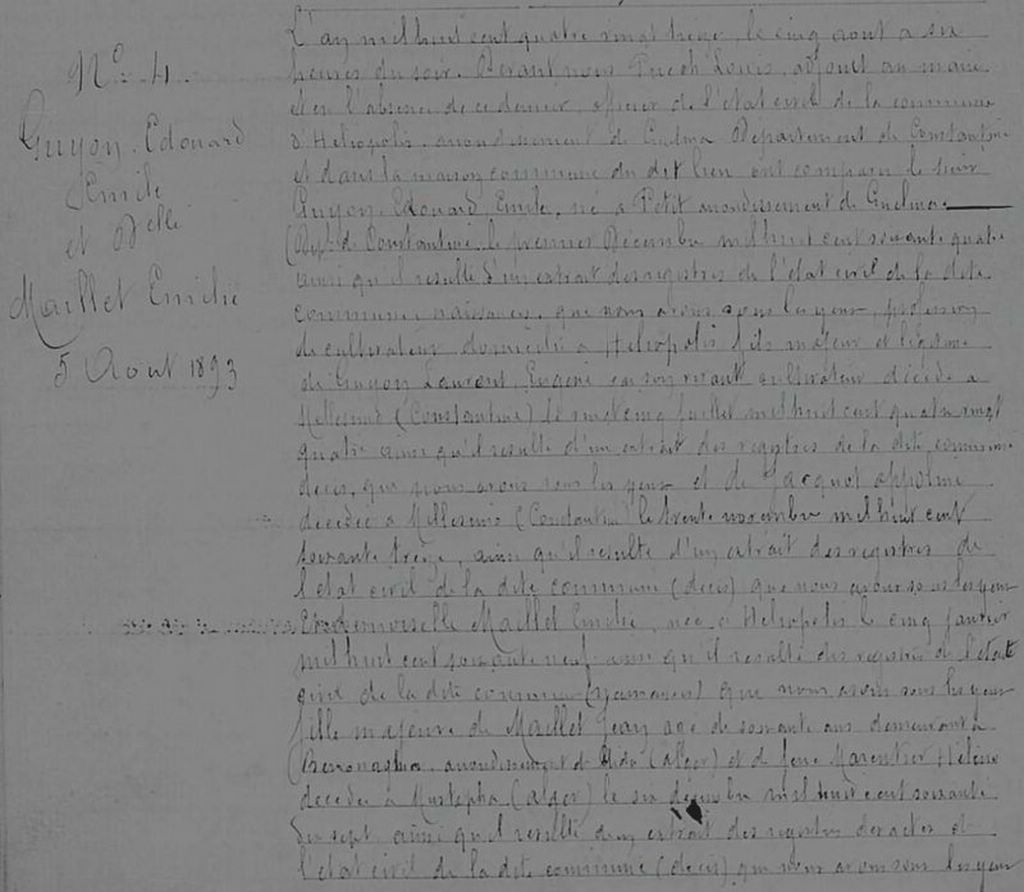 N° 4.
Guyon Edouard
Emile
et Delle
Maillet Emilie
5 Août 1893
L'an mil huit cent quatre vingt treize, le cinq aout a six
heures du soir. Devant nous Puech Louis, adjoint au maire
et en l'absence de ce dernier, officier de l'état civil de la commune
d'Heliopolis, arrondissement de Guelma Département de Constantine
et dans la maison commune du dit lieu ont comparu le sieur
Guyon Edouard Emile, né a Petit arrondissement de Guelma
(Dept de Constantine le premier Décembre mil huit cent soixante quatre
ainsi qu'il resulte d'un extrait des registres de l'état civil de la dite
commune naissances, que nous avons sous les yeux, profession
de cultivateur domicilié a Heliopolis fils majeur et légitime
de Guyon Laurent Eugène en son vivant cultivateur décédé a
Millesimo (Constantine) le vingt cinq juillet mil huit cent quatre vingt
quatre ainsi qu'il resulte d'un extrait des registres de la dite commune
décès, que nous avons sous les yeux et de Jacquot appoline
décédée a Millesimo (Constantine le trente novembre mil huit cent
soixante treize, ainsi qu'il resulte d'un extrait des registres de
l'état civil de la dite commune (décès) que nous avons sous les yeux
Et demoiselle Maillet Emilie, née a Heliopolis le cinq janvier
mil huit cent soixante neuf ainsi qu'il resulte des registres de l'état
civil de la dite commune (naissances) que nous avons sous les yeux
fille majeure de Maillet Jean agé de soixante ans demeurant a
arrondissement de (alger) et de feue Marentier Hélène
decedée a Mustapha (alger) le six décembre mil huit cent soixante
dix sept ainsi qu'il resulte d'un extrait des registres des actes de
l'état civil de la dite commune (décès) que nous avons sous les yeux